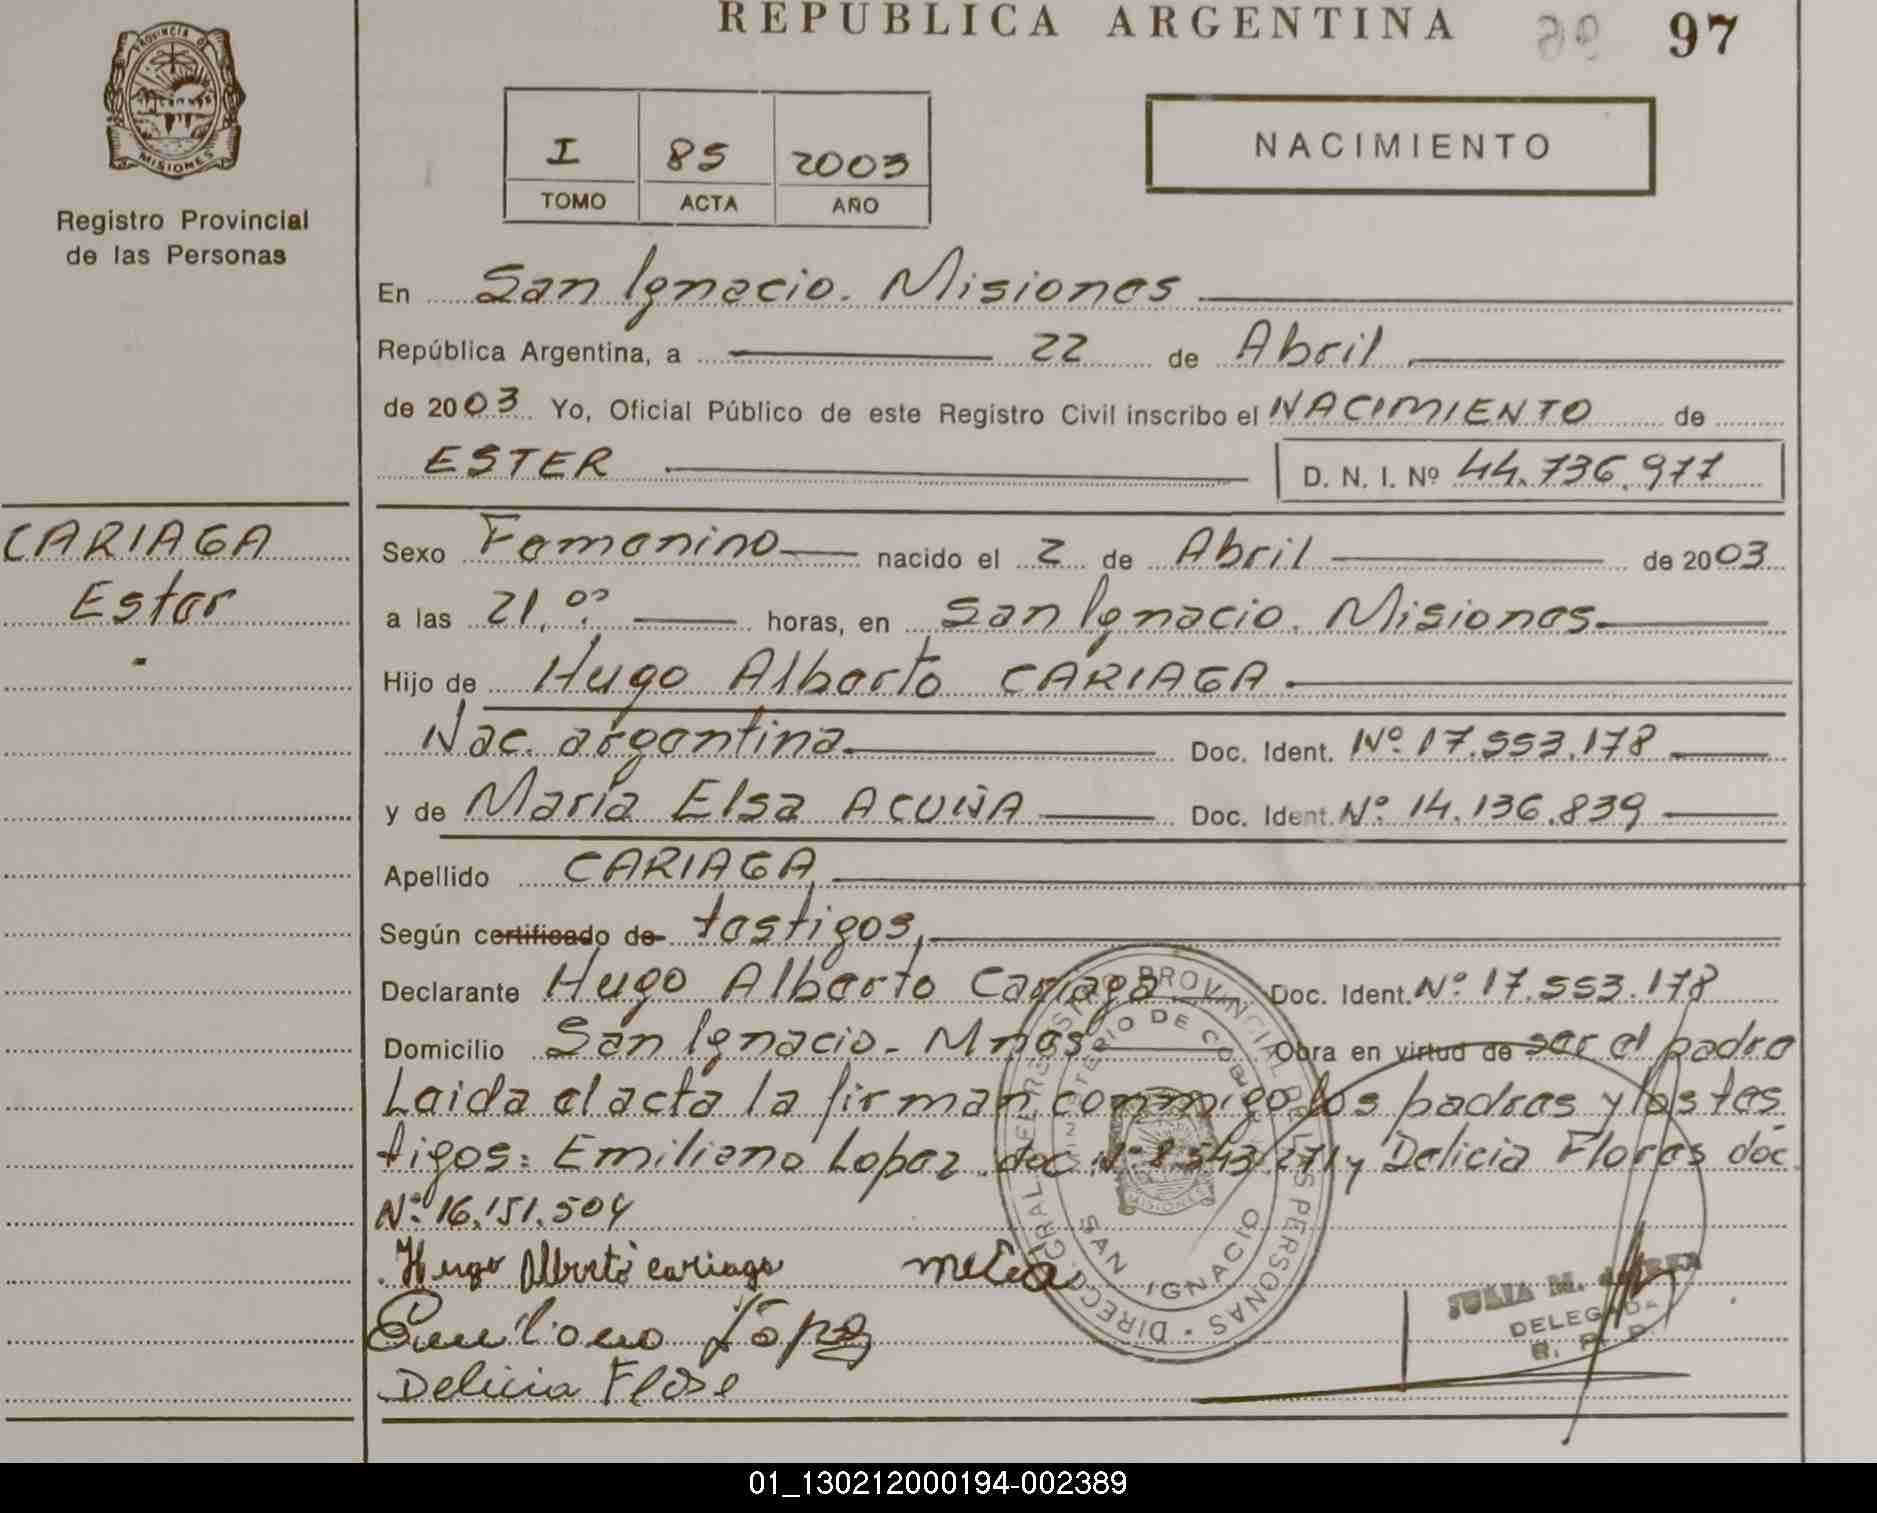 REPUBLICA ARGENTINA 97
PROVINCIA DE
MISIONES
Registro Provincial
de las Personas
I 85 2003
TOMO ACTA AÑO
NACIMIENTO
En San Ignacio. Misiones
República Argentina, a 22 de Abril
de 2003 Yo, Oficial Público de este Registro Civil inscribo el NACIMIENTO de
ESTER D. N. I. Nº 44.736.977
CARIAGA
Ester
Sexo Femenino nacido el 2 de Abril de 2003
a las 21,00 horas, en San Ignacio. Misiones
Hijo de Hugo Alberto CARIAGA
Nac. argentina Doc. Ident. Nº 17.553.178
y de María Elsa ACUÑA Doc. Ident. Nº 14.136.839
Apellido CARIAGA
Según certificado de testigos,
Declarante Hugo Alberto Cariaga Doc. Ident. Nº 17.553.178
Domicilio San Ignacio - Mnes Obra en virtud de ser el padre
Leida el acta la firman conmmigo los padres y los tes
tigos: Emiliano Lopez doc Nº 8.543.271 y Delicia Flores doc.
Nº 16.151.504
Hugo Alberto cariaga
Emiliano López
Delicia Flose
DIRECC. GRAL. DEL REGISTRO PROVINCIAL DE LAS PERSONAS
MINISTERIO DE GOBIERNO
MISIONES
SAN IGNACIO
JULIA M.
DELEGADA
R. P. P.
01_130212000194-002389